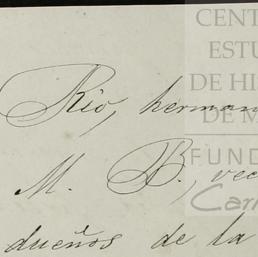 CENT
ESTU
DE HI
DE M
FUND
Car
Rio, herman
M. B., vec
dueños de la